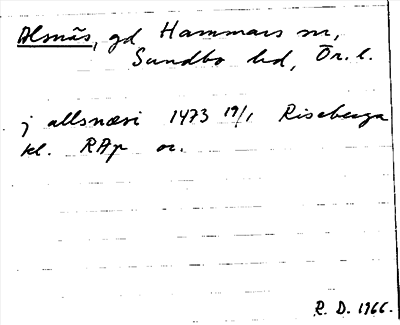 Alsnäs, gd Hammars sn,
Sundbo hd, Ör. l.
j allsnæsi 1473 19/1 Riseberga
kl. RAp or.
R. D. 1966.